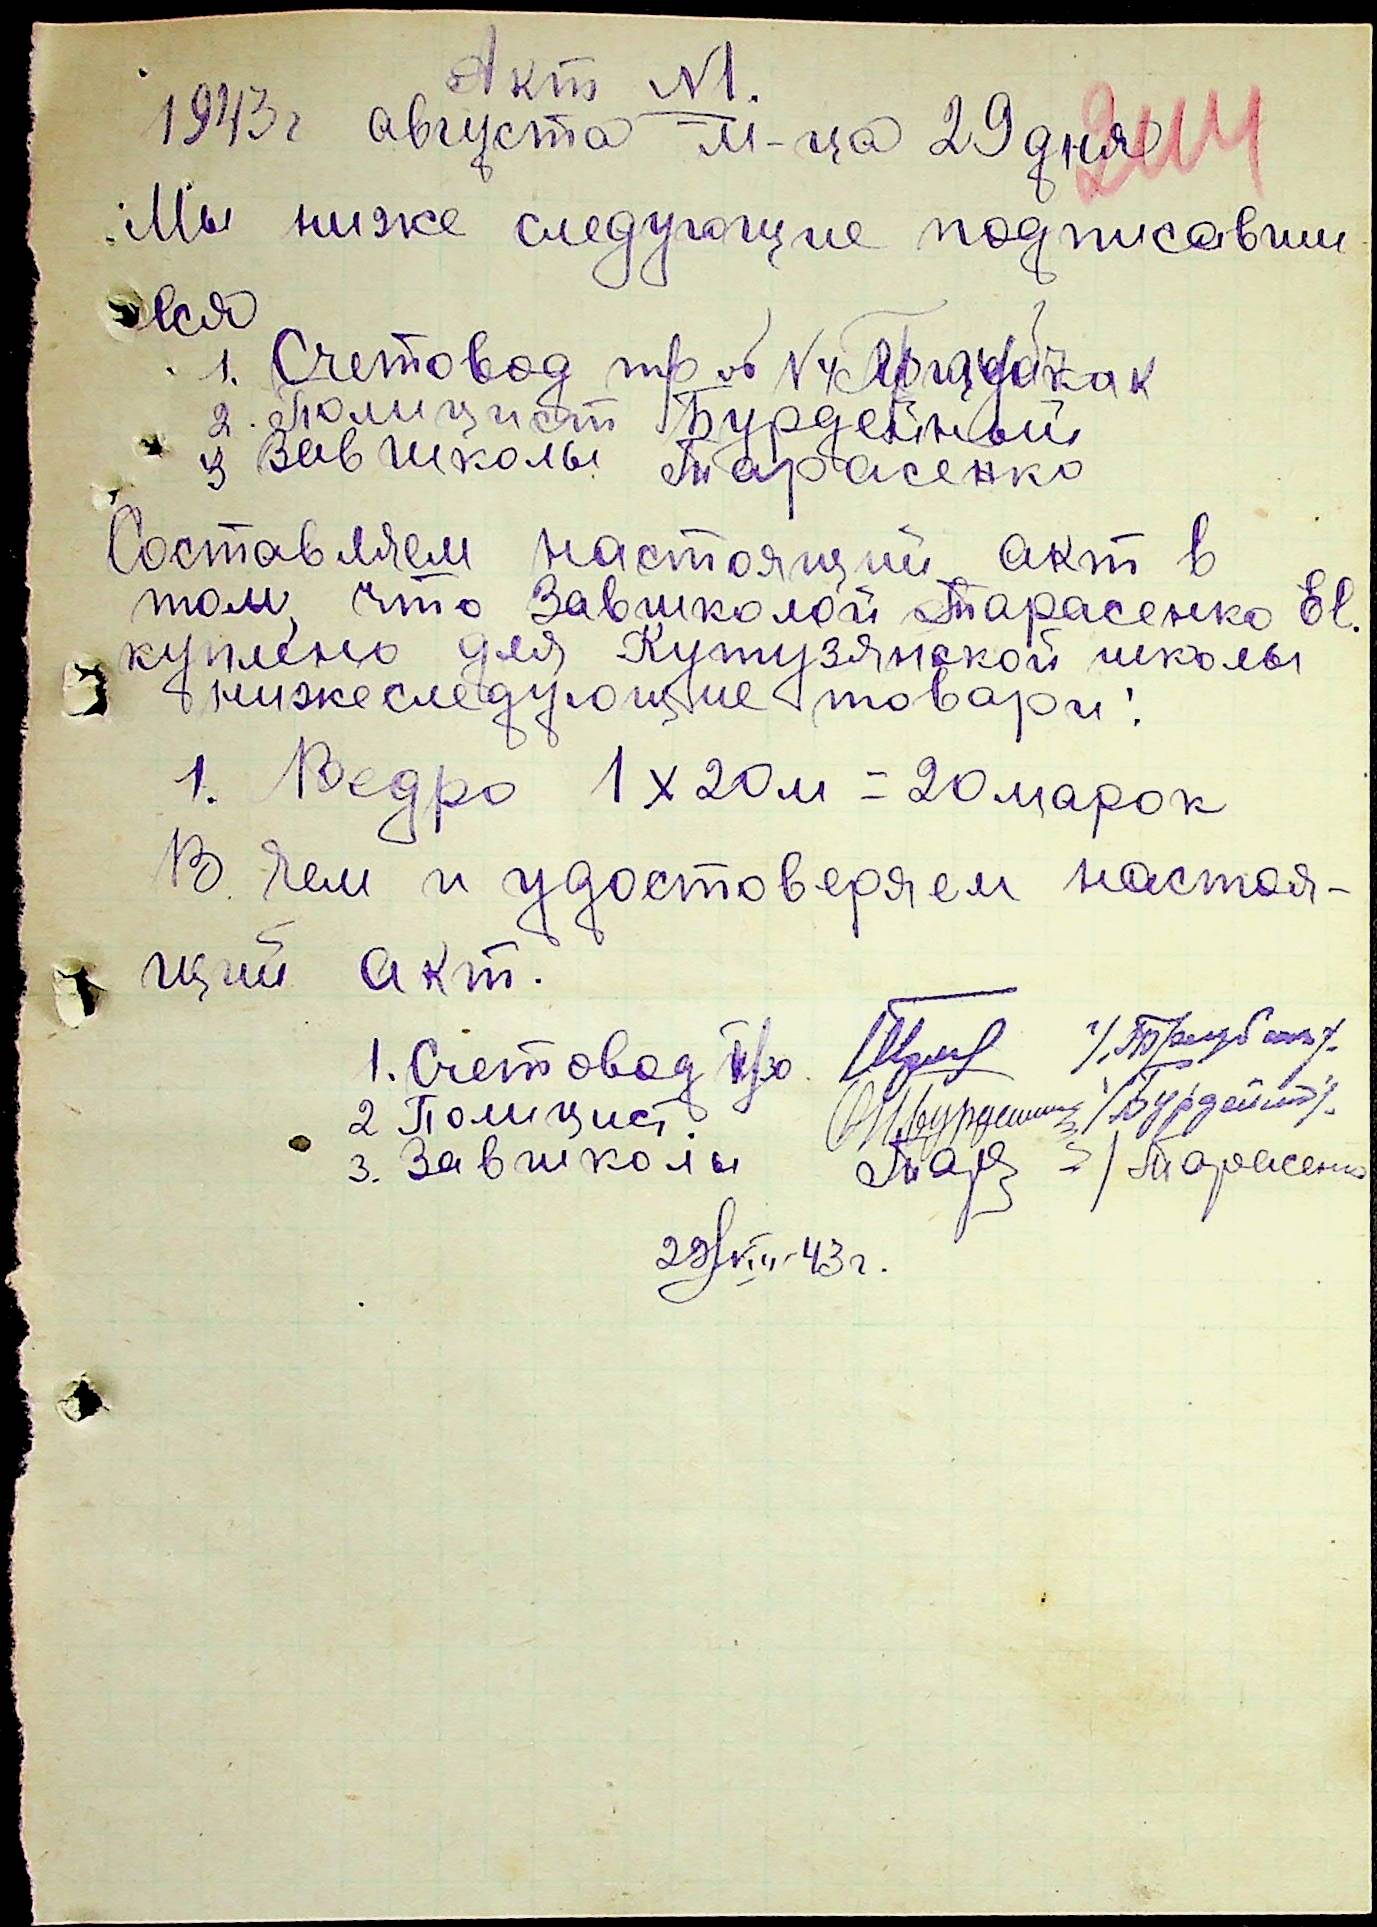 Акт N1.
1943г августа м-ца 29 дня
Мы ниже следующие подписавши
вся
1. Счетовод тр об N4
2. Полицист Бурдейный
3 Завшколы Тарасенко
Составляем настоящий акт в
том, что Завшколой Тарасенко Ев.
куплено для Кутузянской школы
нижеследующие товари:
1. Ведро 1 х 20м = 20 марок
В чем и удостоверяем настоя-
щий акт.
1. Счетовод
2 Полицист. /Бурдейный/.
3. Завшколы Тар /Тарасенко
29/VIII-43г.